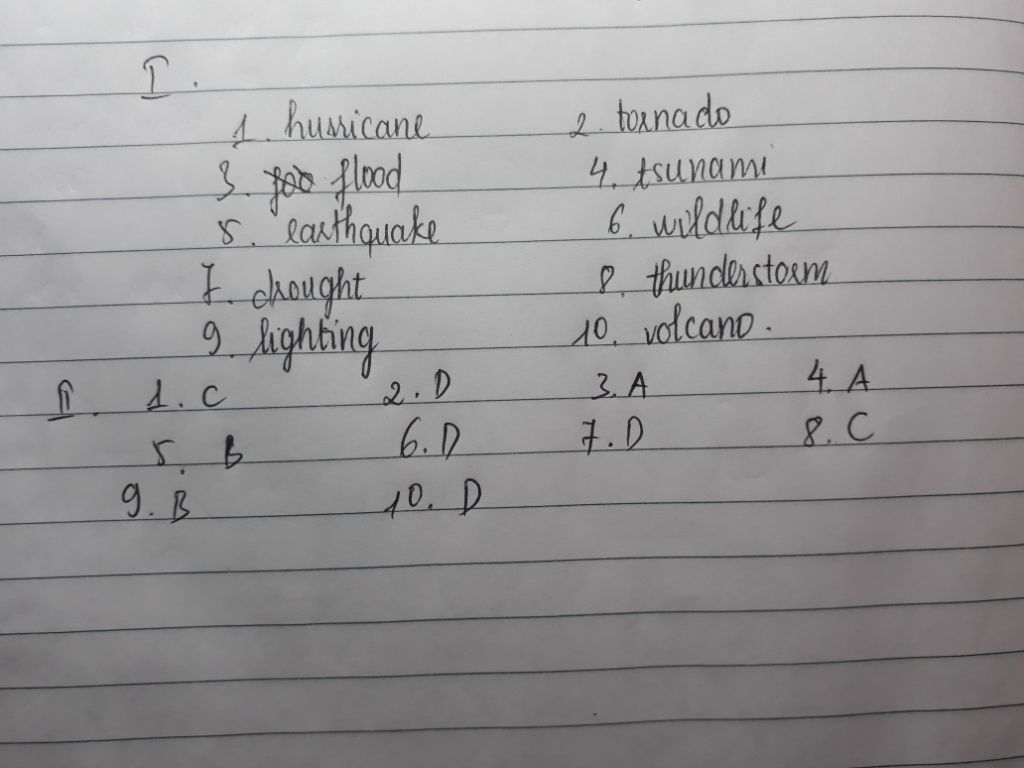 I.
1. hurricane 2. tornado
3. flood 4. tsunami
5. earthquake 6. wildlife
7. drought 8. thunderstorm
9. lighting 10. volcano.
II. 1. C 2. D 3. A 4. A
5. B 6. D 7. D 8. C
9. B 10. D